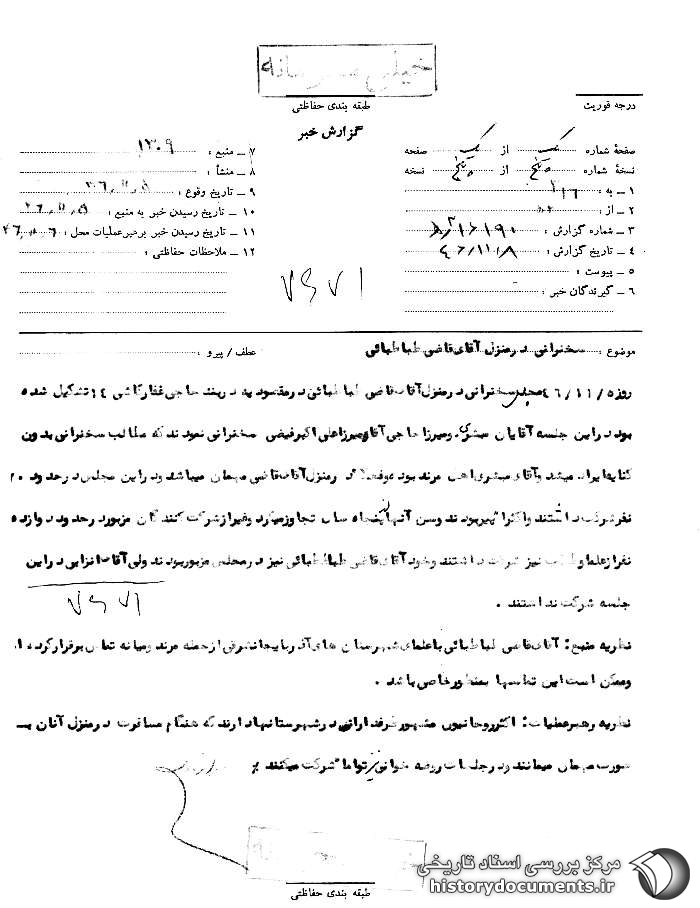 خیلی محرمانه
طبقه بندی حفاظتی
درجه فوریت
گزارش خبر
صفحهٔ شماره یک از یک صفحه
نسخهٔ شماره پنج از پنج نسخه
۱ ــ به : ۳۱۶
۲ ــ از :
۳ ــ شماره گزارش :
۴ ــ تاریخ گزارش : ۴۶/۱۱/۸
۵ ــ پیوست :
۶ ــ گیرندگان خبر :
۷ ــ منبع : ۱۳۰۹
۸ ــ منشأ :
۹ ــ تاریخ وقوع : ۴۶/۱۱/۵
۱۰ ــ تاریخ رسیدن خبر به منبع : ۴۶/۱۱/۵
۱۱ ــ تاریخ رسیدن خبر برهبر عملیات محل : ۴۶/۱۱/۶
۱۲ ــ ملاحظات حفاظتی :
۷۶۷۱
موضوع : سخنرانی در منزل آقای قاضی طباطبائی
عطف / پیرو :
روز ۴۶/۱۱/۵ مجلس سخنرانی در منزل آقای قاضی طباطبائی در مقصودیه دربند حاجی غفارکاشی ۱۴ تشکیل شده
بود در این جلسه آقایان مبشری و میرزا حاجی آقا و میرزا علی اکبر فیضی سخنرانی نمودند که مطالب سخنرانی بدون
کنایه ایراد میشد و آقای مبشری اهل مرند بوده و فعلا در منزل آقای قاضی مهمان میباشد و در این مجلس در حدود ۲۰
نفر شرکت داشتند و اکثرا پیر بودند و سن آنها از پنجاه سال تجاوز میکرد و غیر از شرکت کنندگان مزبور در حدود دوازده
نفر از علما و طلاب نیز شرکت داشتند و خود آقای قاضی طباطبائی نیز در مجلس مزبور بودند ولی آقای انزابی در این
جلسه شرکت نداشتند .
۷۶۷۱
نظریه منبع : آقای قاضی طباطبائی با علمای شهرستان های آذربایجانشرقی از جمله مرند و میانه تماس برقرار کرده ا
و ممکن است این تماسها بمنظور خاصی باشد .
نظریه رهبر عملیات : اکثر روحانیون مشهور طرفدارانی در شهرستانها دارند که هنگام مسافرت در منزل آنان بـ
صورت مهمان میمانند و در جلسات روضه خوانی نیز تواما شرکت میکنند %
طبقه بندی حفاظتی
مرکز بررسی اسناد تاریخی
historydocuments.ir